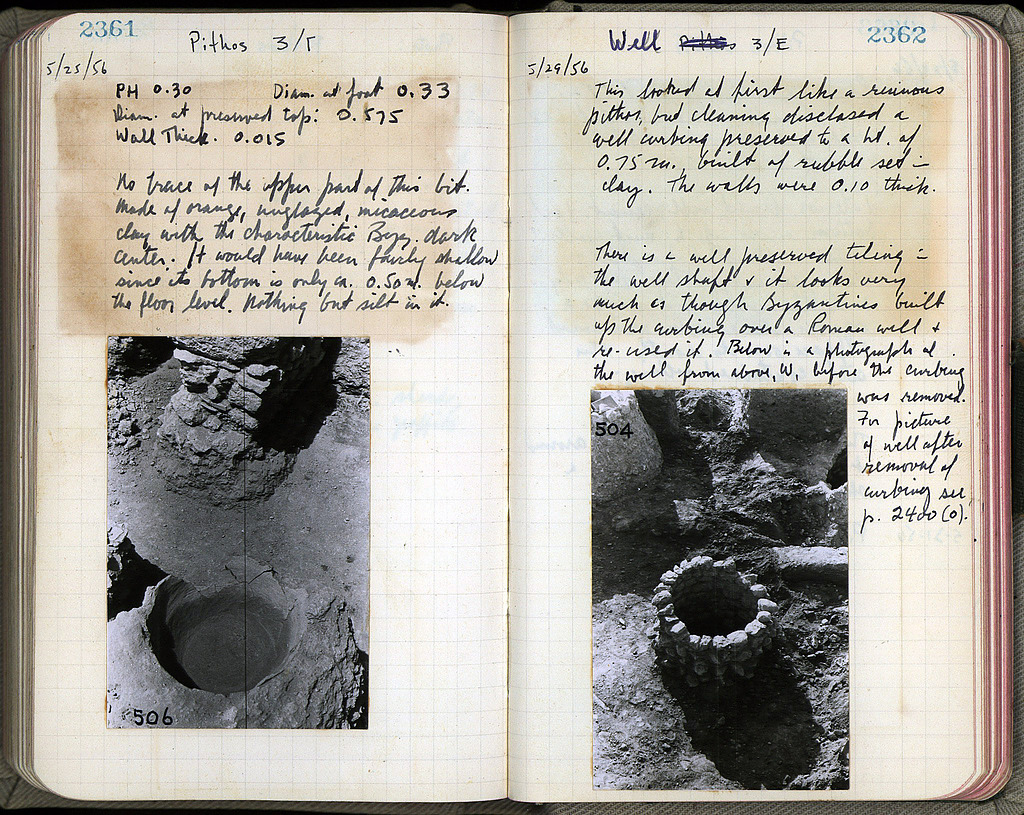 2361
Pithos 3/Γ
5/25/56
PH 0.30 Diam. at foot 0.33
Diam. at preserved top: 0.575
Wall Thick. 0.015
No trace of the upper part of this bit.
Made of orange, unglazed, micaceous
clay with the characteristic Byz. dark
center. It would have been fairly shallow
since its bottom is only ca. 0.50 m. below
the floor level. Nothing but silt in it.
506
2362
Well Pithos 3/E
5/29/56
This looked at first like a ruinous
pithos, but cleaning disclosed a
well curbing preserved to a ht. of
0.75 m., built of rubble set in
clay. The walls were 0.10 thick.
There is a well preserved tiling in
the well shaft & it looks very
much as though Byzantines built
up the curbing over a Roman well &
re-used it! Below is a photograph of
the well from above, W, before the curbing
was removed.
For picture
of well after
removal of
curbing see
p. 2400 (o).
504